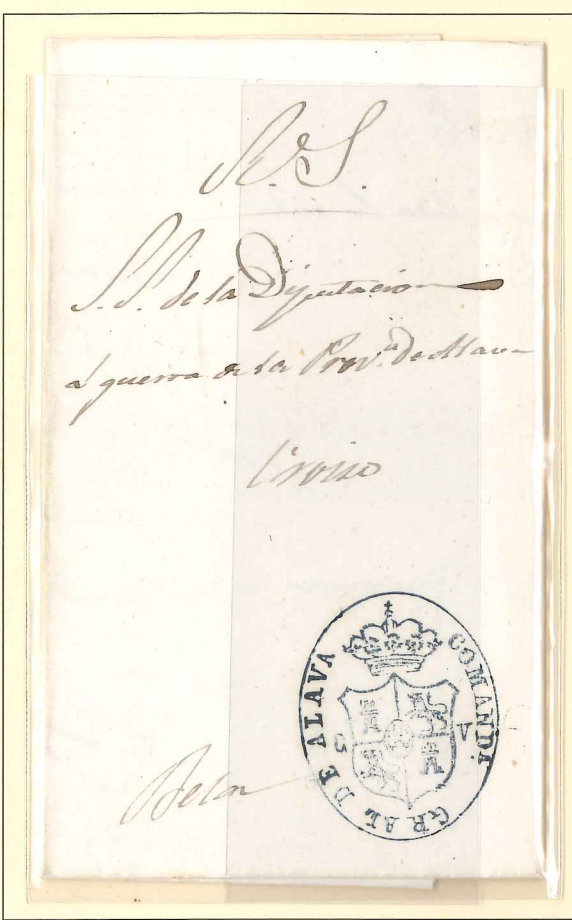 R. S.
S. S. de la Diputacion
á guerra de la Prov.ª de Alava
COMANDA GRAL DE ALAVA
C V